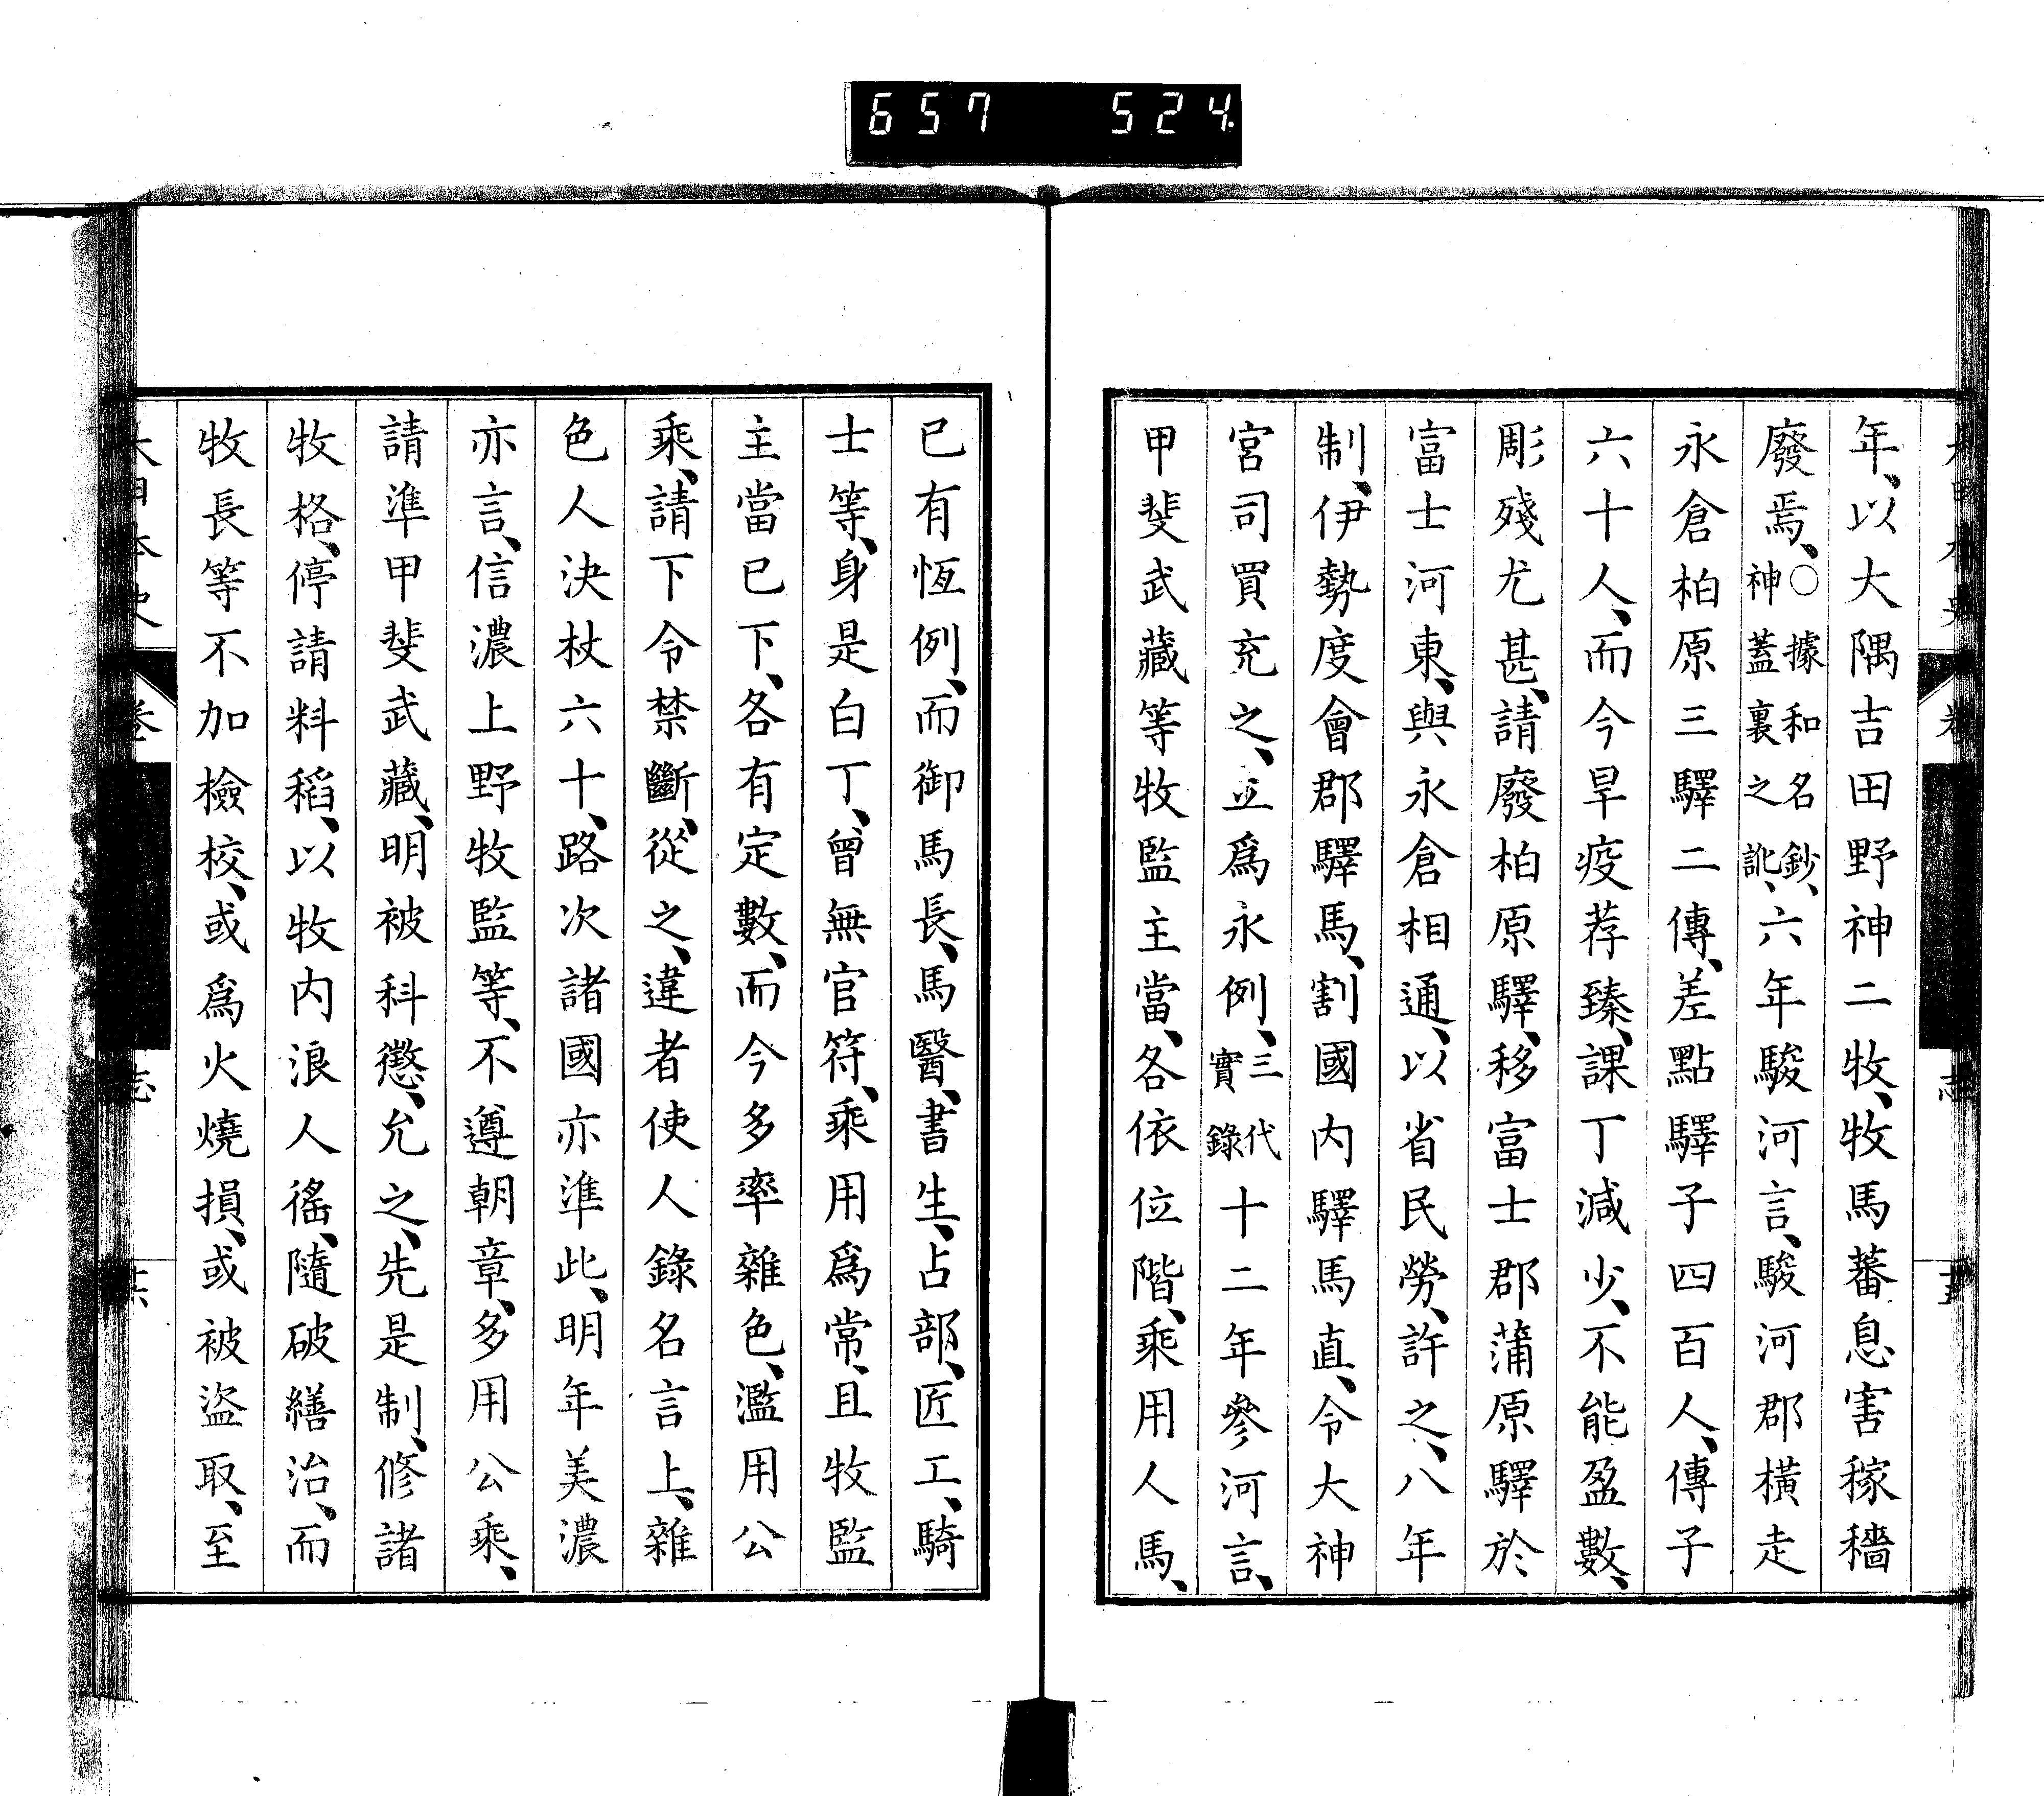 657 524
年、以大隅吉田野神二牧、牧馬蕃息害稼穡
廢焉、○據和名鈔、神蓋裏之訛、六年駿河言、駿河郡橫走
永倉柏原三驛二傳、差點驛子四百人、傳子
六十人、而今旱疫荐臻、課丁減少、不能盈數、
彫殘尤甚、請廢柏原驛、移富士郡蒲原驛於
富士河東、與永倉相通、以省民勞、許之、八年
制、伊勢度會郡驛馬、割國内驛馬直、令大神
宮司買充之、並爲永例、三代實錄十二年參河言、
甲斐武藏等牧監主當、各依位階、乘用人馬、
已有恆例、而御馬長、馬醫、書生、占部、匠工、騎
士等、身是白丁、曾無官符、乘用爲常、且牧監
主當已下、各有定數、而今多率雜色、濫用公
乘、請下令禁斷、從之、違者使人錄名言上、雜
色人決杖六十、路次諸國亦準此、明年美濃
亦言、信濃上野牧監等、不遵朝章、多用公乘、
請準甲斐武藏、明被科懲、允之、先是制、修諸
牧格、停請料稻、以牧内浪人徭、隨破繕治、而
牧長等不加檢校、或爲火燒損、或被盜取、至